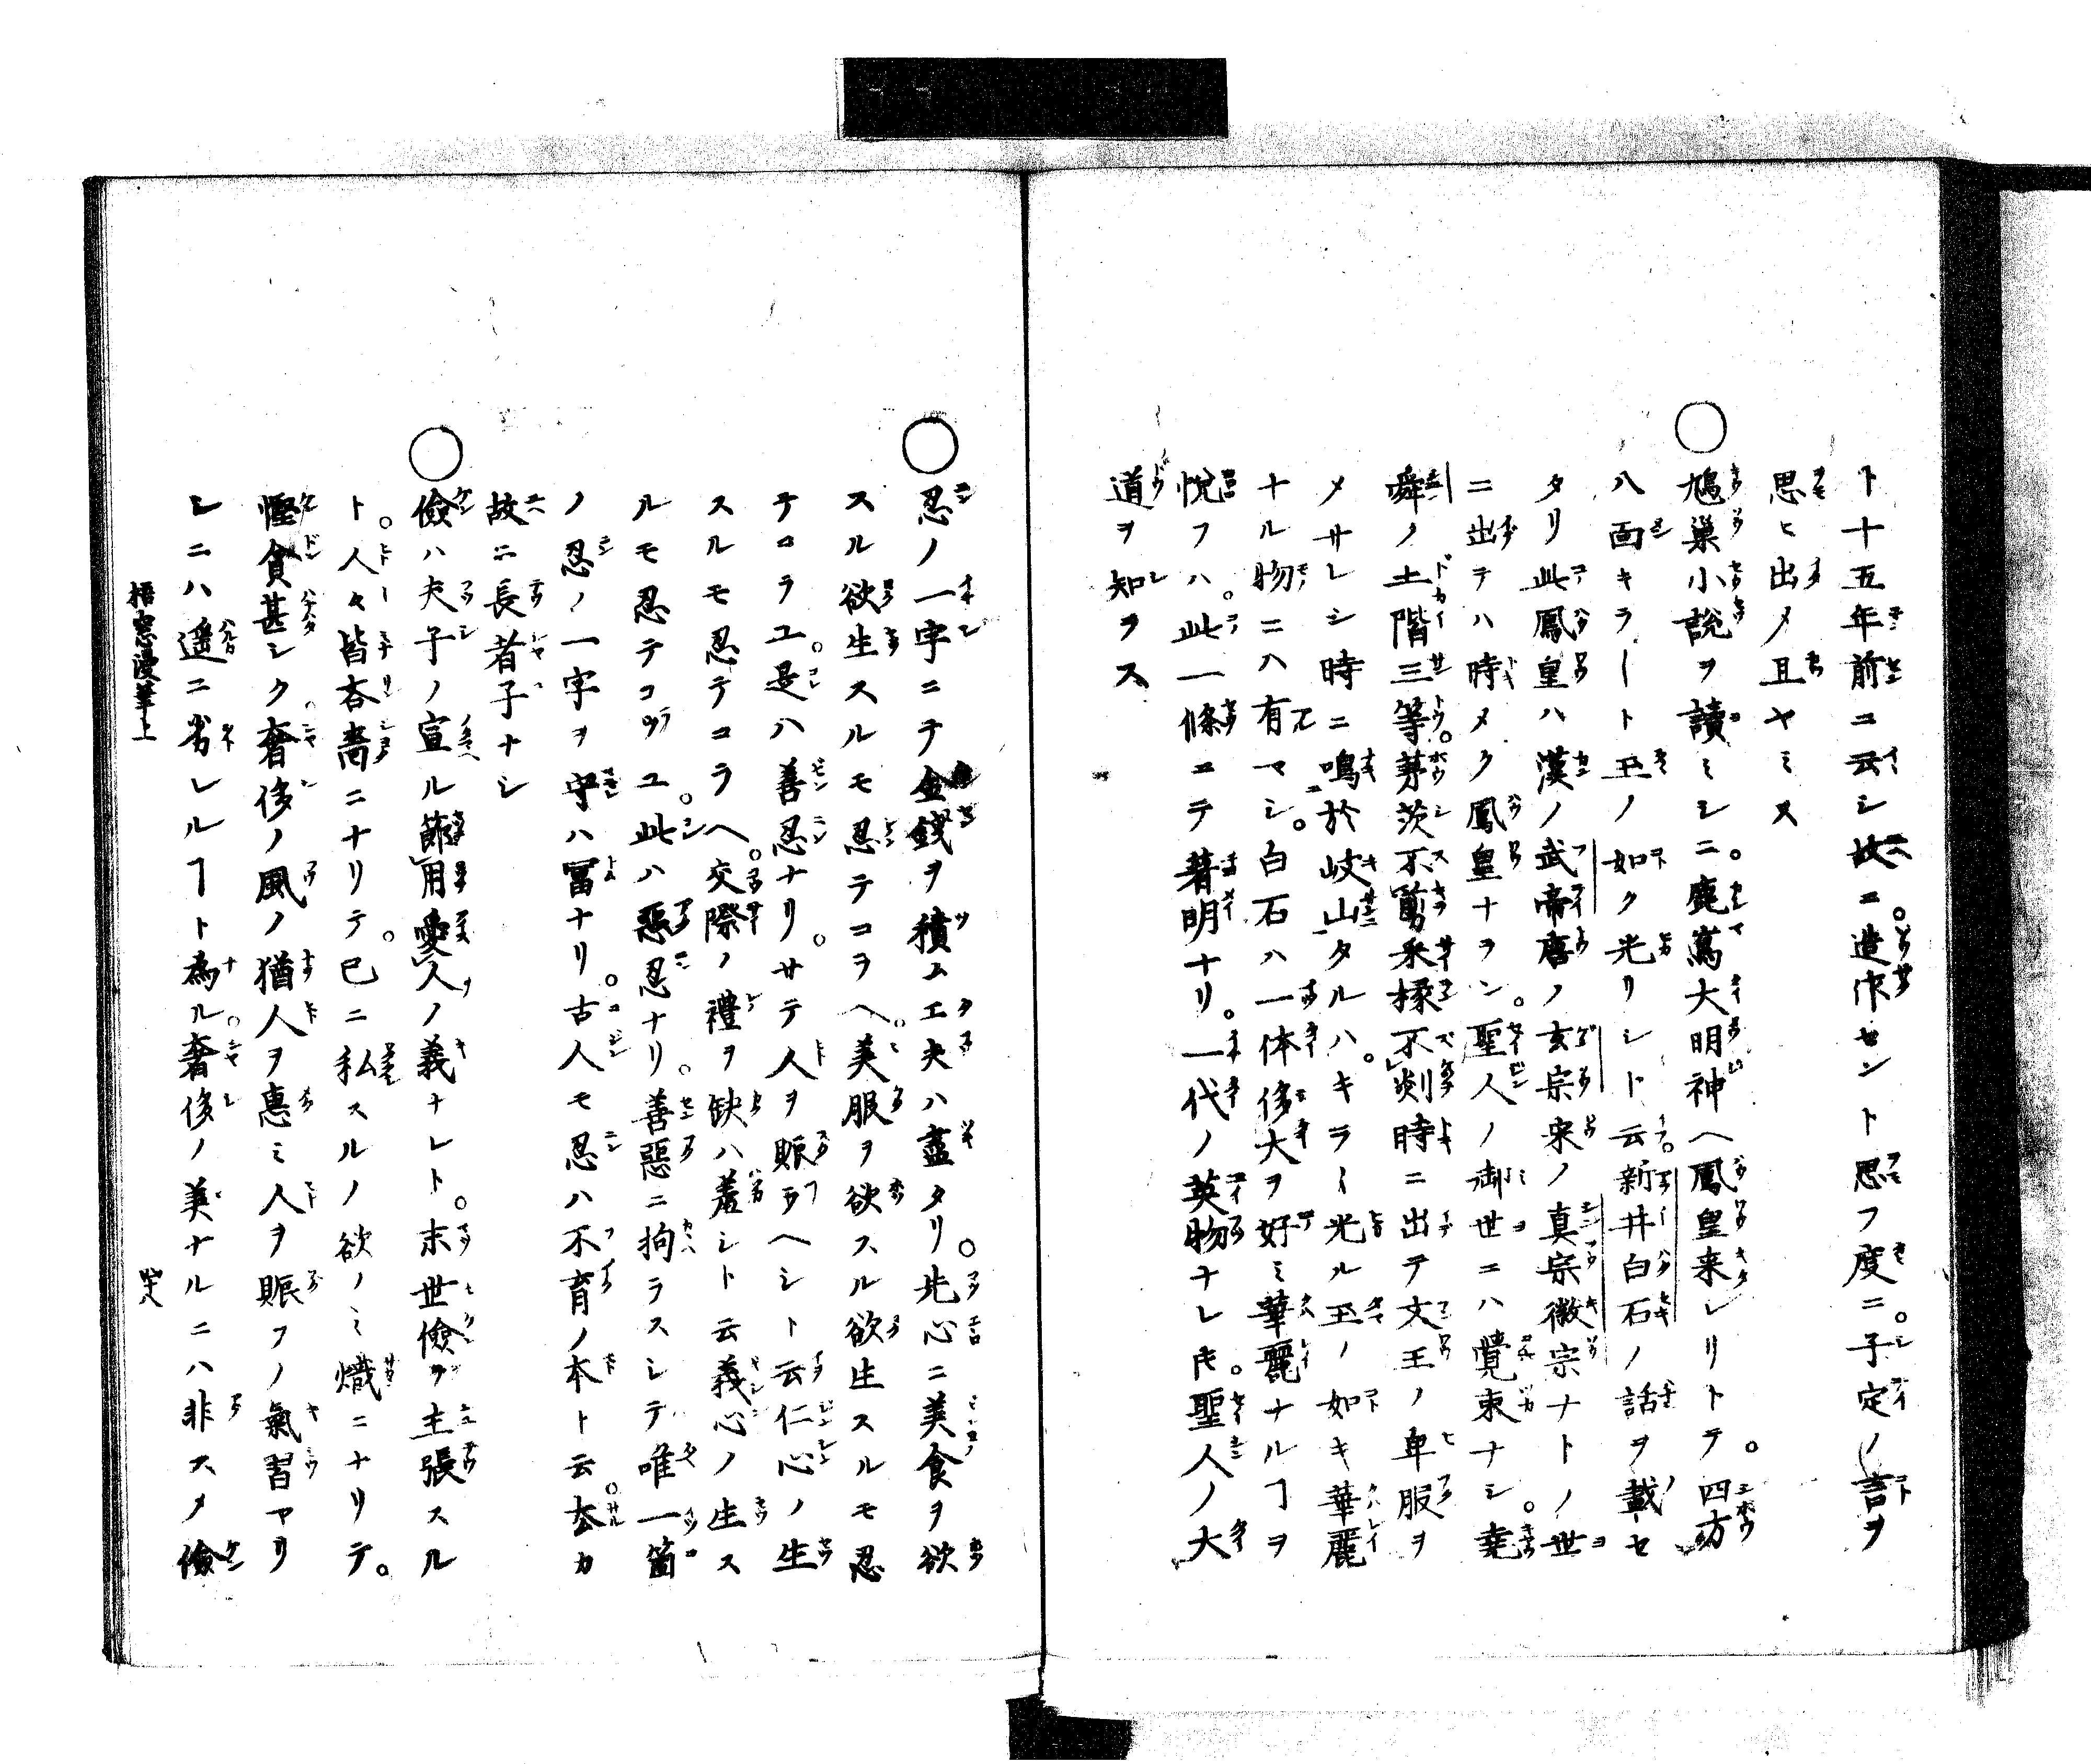 ト十五年前ニ云シ故ニ造作セント思フ度ニ。子定ノ言ヲ
思ヒ出メ且ヤミヌ
○鳩巣小説ヲ讀ミシニ。鹿嶌大明神ヘ鳳皇来レリトテ。四方
八面キラ〳〵ト玉ノ如ク光リシト云。新井白石ノ話ヲ載セ
タリ此鳳皇ハ漢ノ武帝唐ノ玄宗宋ノ真宗徽宗ナトノ世
ニ出テハ時メク鳳皇ナラン。聖人ノ御世ニハ覺束ナシ。堯
舜ノ土階三等。茅茨不剪采椽不剡時ニ出テ文王ノ卑服ヲ
メサレシ時ニ鳴於岐山タルハ。キラ〳〵光ル玉ノ如キ華麗
ナル物ニハ有マシ。白石ハ一体侈大ヲ好ミ華麗ナルヿヲ
悦フハ。此一條ニテ著明ナリ。一代ノ英物ナレ𪜈。聖人ノ大
道ヲ知ラス
○忍ノ一字ニテ金錢ヲ積ム工夫ハ盡タリ。先心ニ美食ヲ欲
スル欲生スルモ忍テコラヘ。美服ヲ欲スル欲生スルモ忍
テコラユ。是ハ善忍ナリ。サテ人ヲ賑ヲヘシト云仁心ノ生
スルモ忍テコラヘ。交際ノ禮ヲ缺ハ羞シト云義心ノ生ス
ルモ忍テコラユ。此ハ惡忍ナリ。善惡ニ拘ラスシテ唯一箇
ノ忍ノ一字ヲ守ハ冨ナリ。古人モ忍ハ不育ノ本ト云。カ
故ニ長者子ナシ
○儉ハ夫子ノ宣ル節用愛人ノ義ナレト。末世儉ヲ主張スル
ト。人々皆吝嗇ニナリテ。已ニ私スルノ欲ノミ熾ニナリテ。
慳貪甚シク。奢侈ノ風ノ猶人ヲ惠ミ人ヲ賑フノ氣習アリ
シニハ遥ニ劣レルヿト為ル。奢侈ノ美ナルニハ非スメ儉
梧窓漫筆上